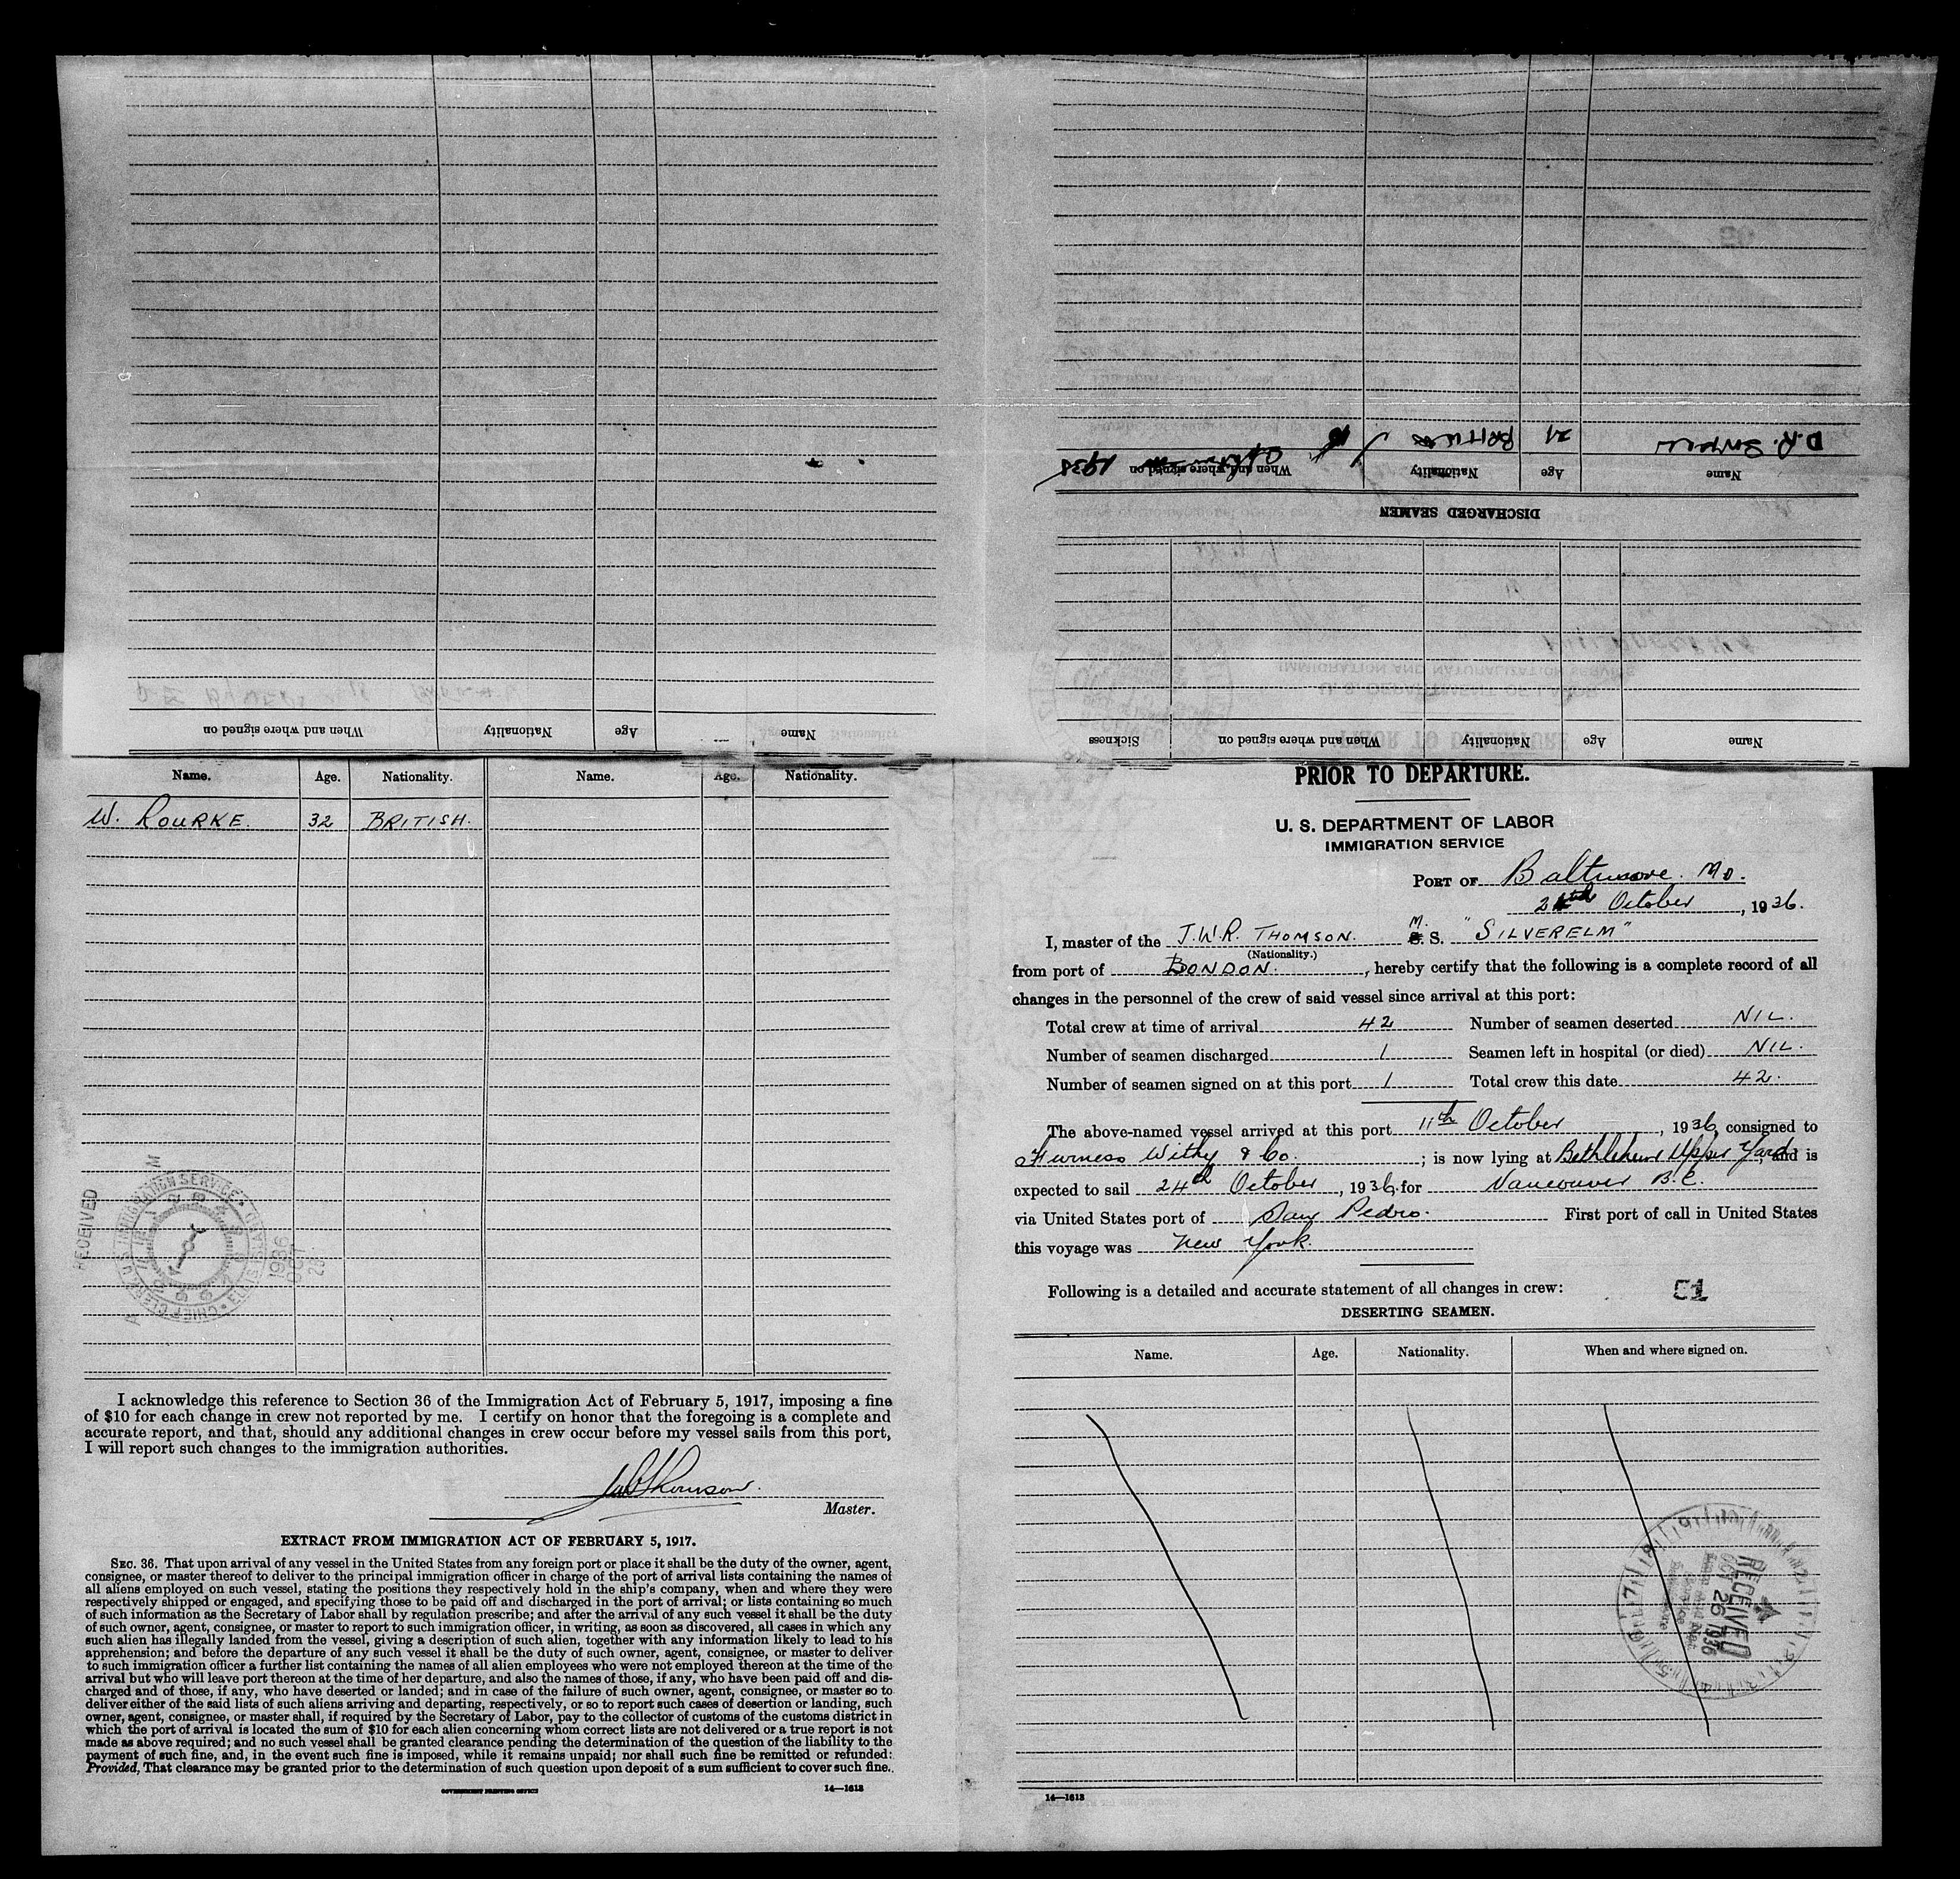 Name Age Nationality When and where signed on Sickness
DISCHARGED SEAMEN
Name Age Nationality When and where signed on
D.R. 21 1938
Name Age Nationality When and where signed on
Name. Age. Nationality. Name. Age. Nationality.
W. ROURKE. 32 BRITISH.
RECEIVED
1936
OCT
I acknowledge this reference to Section 36 of the Immigration Act of February 5, 1917, imposing a fine
of $10 for each change in crew not reported by me. I certify on honor that the foregoing is a complete and
accurate report, and that, should any additional changes in crew occur before my vessel sails from this port,
I will report such changes to the immigration authorities.
Thomson.
Master.
EXTRACT FROM IMMIGRATION ACT OF FEBRUARY 5, 1917.
SEC. 36. That upon arrival of any vessel in the United States from any foreign port or place it shall be the duty of the owner, agent,
consignee, or master thereof to deliver to the principal immigration officer in charge of the port of arrival lists containing the names of
all aliens employed on such vessel, stating the positions they respectively hold in the ship's company, when and where they were
respectively shipped or engaged, and specifying those to be paid off and discharged in the port of arrival; or lists containing so much
of such information as the Secretary of Labor shall by regulation prescribe; and after the arrival of any such vessel it shall be the duty
of such owner, agent, consignee, or master to report to such immigration officer, in writing, as soon as discovered, all cases in which any
such alien has illegally landed from the vessel, giving a description of such alien, together with any information likely to lead to his
apprehension; and before the departure of any such vessel it shall be the duty of such owner, agent, consignee, or master to deliver
to such immigration officer a further list containing the names of all alien employees who were not employed thereon at the time of the
arrival but who will leave port thereon at the time of her departure, and also the names of those, if any, who have been paid off and dis-
charged and of those, if any, who have deserted or landed; and in case of the failure of such owner, agent, consignee, or master so to
deliver either of the said lists of such aliens arriving and departing, respectively, or so to report such cases of desertion or landing, such
owner, agent, consignee, or master shall, if required by the Secretary of Labor, pay to the collector of customs of the customs district in
which the port of arrival is located the sum of $10 for each alien concerning whom correct lists are not delivered or a true report is not
made as above required; and no such vessel shall be granted clearance pending the determination of the question of the liability to the
payment of such fine, and, in the event such fine is imposed, while it remains unpaid; nor shall such fine be remitted or refunded:
Provided, That clearance may be granted prior to the determination of such question upon deposit of a sum sufficient to cover such fine.
GOVERNMENT PRINTING OFFICE 14—1613
PRIOR TO DEPARTURE.
U. S. DEPARTMENT OF LABOR
IMMIGRATION SERVICE
PORT OF Baltimore. MD.
October, 1936.
I, master of the J.W.R. THOMSON. M. S. "SILVERELM"
(Nationality.)
from port of BONDON., hereby certify that the following is a complete record of all
changes in the personnel of the crew of said vessel since arrival at this port:
Total crew at time of arrival 42 Number of seamen deserted NIL.
Number of seamen discharged 1 Seamen left in hospital (or died) NIL.
Number of seamen signed on at this port 1 Total crew this date 42.
The above-named vessel arrived at this port 11th October, 1936, consigned to
Furness Withy & Co.; is now lying at Bethlehem Upper Yard, and is
expected to sail 24th October, 1936, for Vancouver B.C.
via United States port of San Pedro. First port of call in United States
this voyage was New York.
Following is a detailed and accurate statement of all changes in crew: 51
DESERTING SEAMEN.
Name. Age. Nationality. When and where signed on.
RECEIVED
OCT 26 1936
14—1613